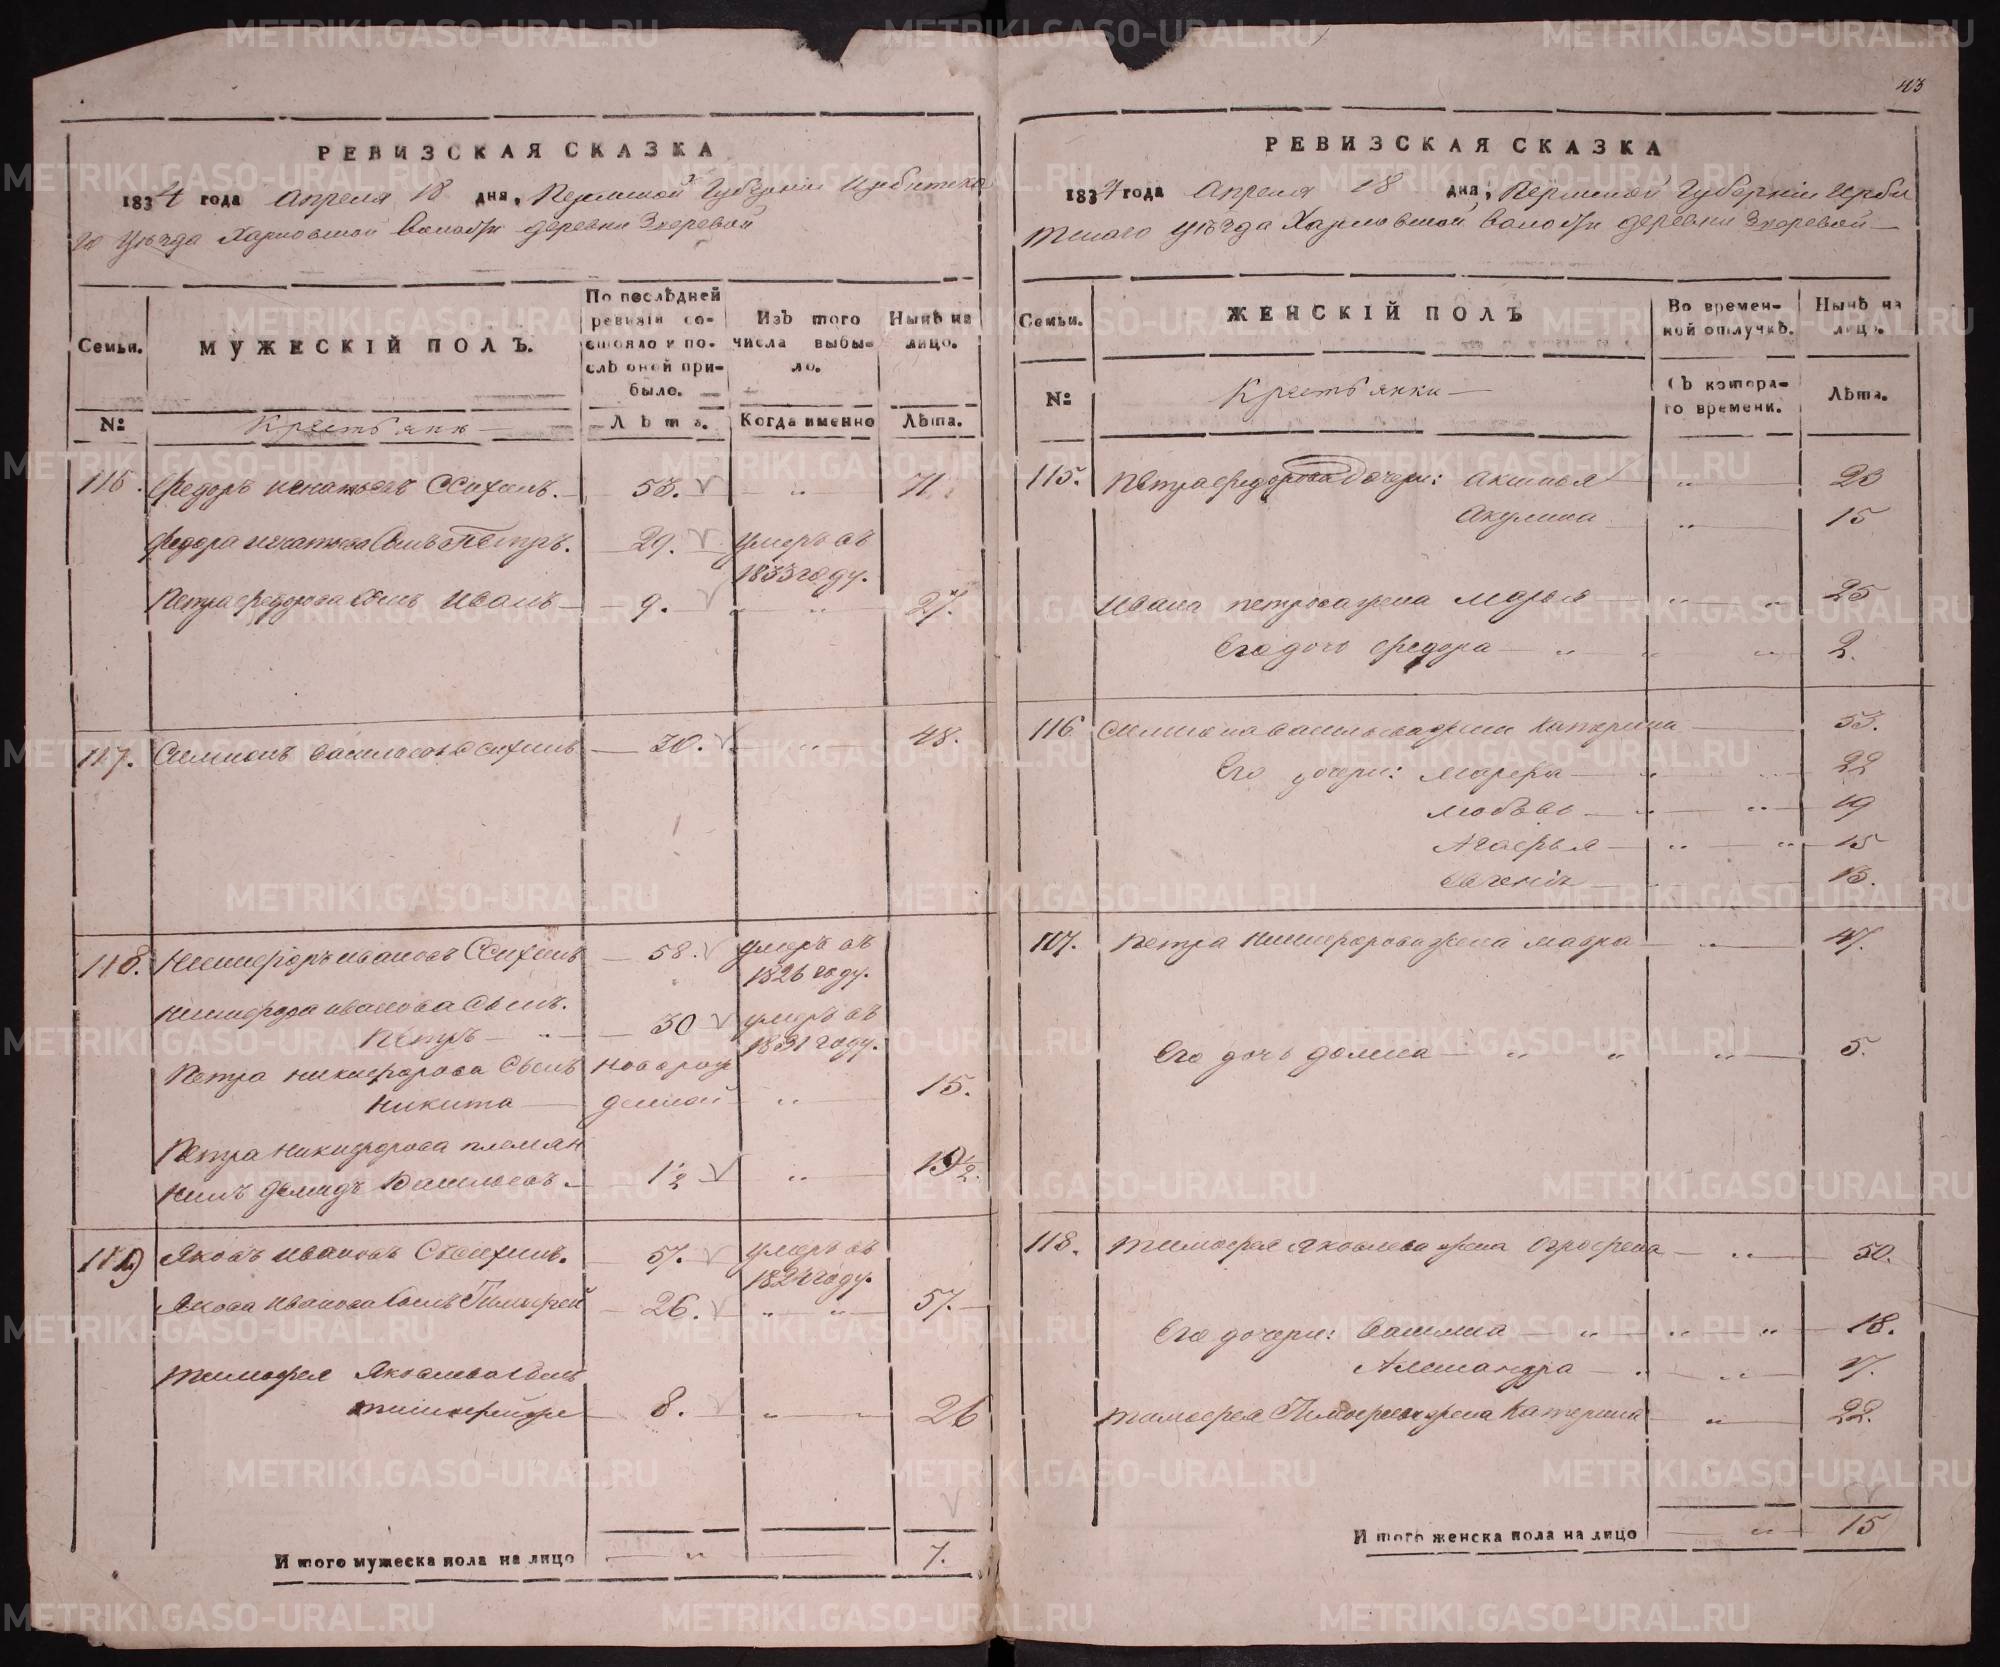 43
РЕВИЗСКАЯ СКАЗКА
1834 года Апреля 18 дня, Пермской Губернiи Ирбитска
го уѣзда Харловской Волости деревни Зверевой
Семьи.
МУЖЕСКIЙ ПОЛЪ.
По послѣдней ревизiи состояло и послѣ оной прибыло.
Изъ того числа выбыло.
Нынѣ на лицо.
№
Крестьяне
Лѣта.
Когда именно
Лѣта.
116. Федоръ Игнатьевъ 53. " 71
Федора Игнатьева Сынъ Петръ. 29. умеръ въ
1833 году.
Петра Федорова Сынъ Иванъ 9. " 27.
117. Симионъ Васильевъ 30. " 48.
118. Никифоръ Ивановъ 58. умеръ въ
1826 году.
Никифора Иванова Сынъ.
Петръ " 30 умеръ въ
1831 году.
Петра Никифорова Сынъ новорож
Никита денной " 15.
Петра Никифорова племян
никъ Демидъ Васильевъ 1½ " 19½.
119 Яковъ Ивановъ 57. умеръ въ
1824 году.
Якова Иванова Сынъ Тимофей 26. " " 57.
Тимофея Яковлева Сынъ
8. " 26
И того мужеска пола на лицо " 7.
РЕВИЗСКАЯ СКАЗКА
1834 года Апреля 18 дня, Пермской Губернiи Ирбит
скаго уѣзда Харловской волости деревни Зверевой
Семьи.
ЖЕНСКIЙ ПОЛЪ
Во временной отлучкѣ.
Нынѣ на лицо.
№
Крестьянки
Съ котораго времени.
Лѣта.
115. Петра Федорова Дочери: Аксинья " 23
Акулина " 15
Ивана Петрова жена Марья " " 25
Его дочь Федора " " " 2.
116 Симиона Васильева жена Катерина 53.
Его дочери: Марфа " 22
Любовь " " 19
Агафья " " 15
Евгенiя 13.
117. Петра Никифорова жена Мавра " 47.
Его дочь Домна " " " 5.
118. Тимофея Яковлева жена Офросенья " 50.
Его дочери: Василиса " " " 18.
Александра " " 17.
Тимофея Тимофеева жена Катерина " 22.
И того женска пола на лицо " 15
METRIKI.GASO-URAL.RU